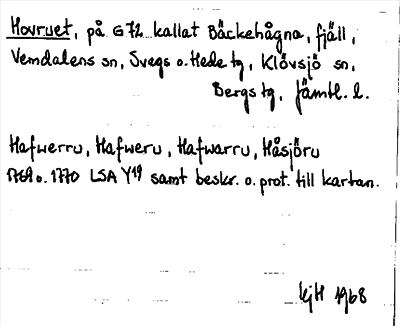 Hovruet, på G72 kallat Bäckehågna, fjäll,
Vemdalens sn, Svegs o. Hede tg, Klövsjö sn,
Bergs tg, Jämtl. l.
Hafwerru, Hafweru, Hafwarru, Håsjöru
1769 o. 1770 LSA Y19 samt beskr. o. prot. till kartan.
1968